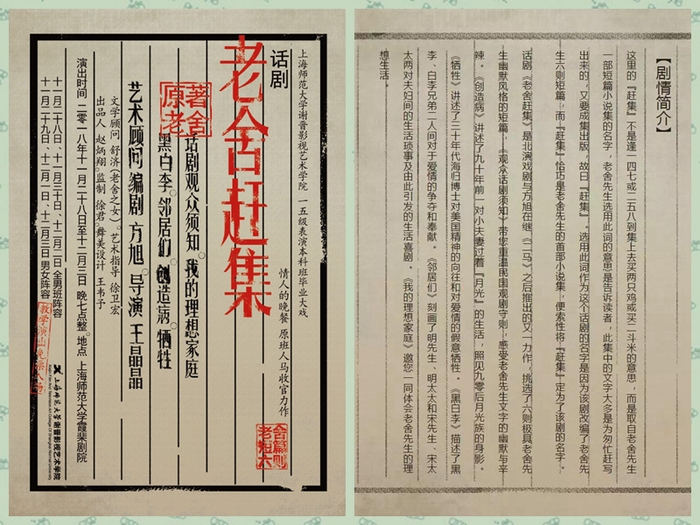 上海师范大学谢晋影视艺术学院 一五级表演本科班毕业大戏
情人的晚餐 原班人马收官力作
话剧
老舍赶集
老舍
原著
话剧观众须知。我的理想家庭
黑白李。邻居们。创造病。牺牲
艺术顾问 编剧 方旭。导演 王晶晶
文学顾问 舒济(老舍之女)。艺术指导 徐卫宏
出品人 赵炳翔。监制 徐君。舞美设计 王韦子
演出时间 二零一八年十一月二十八日至十二月三日 晚七点整。地点 上海师范大学霞棐剧院
十一月二十八日、十一月三十日、十二月二日 全男班阵容
十一月二十九日、十二月一日、十二月三日 男女阵容
教学演出免票入场
上海师范大学谢晋影视艺术学院
【剧情简介】
这里的『赶集』不是逢一四七或二五八到集上去买两只鸡或买二斗米的意思，而是取自老舍先生
一部短篇小说集的名字，老舍先生选用此词的意思是告诉读者，此集中的文字大多是为匆忙赶写
出来的，又要成集出版，故曰『赶集』。选用此词作为这个话剧的名字是因为该剧改编了老舍先
生六则短篇，而『赶集』恰巧是老舍先生的首部小说集，便索性将『赶集』定为了该剧的名字。
话剧《老舍赶集》是北漂戏剧与方旭在继《二马》之后推出的又一力作，挑选了六则极具老舍先
生幽默风格的短篇，《观众话剧须知》带您重温民国观剧守则，感受老舍先生文字的幽默与辛
辣。《创造病》讲述了九十年前一对小夫妻过着『月光』的生活，照见九零后月光族的身影。
《牺牲》讲述了三十年代海归博士对美国精神的向往和对爱情的假意牺牲。《黑白李》描述了黑
李、白李兄弟二人间对于爱情的争夺和奉献。《邻居们》刻画了明先生、明太太和宋先生、宋太
太两对夫妇间的生活琐事及由此引发的生活喜剧。《我的理想家庭》邀您一同体会老舍先生的理
想生活。